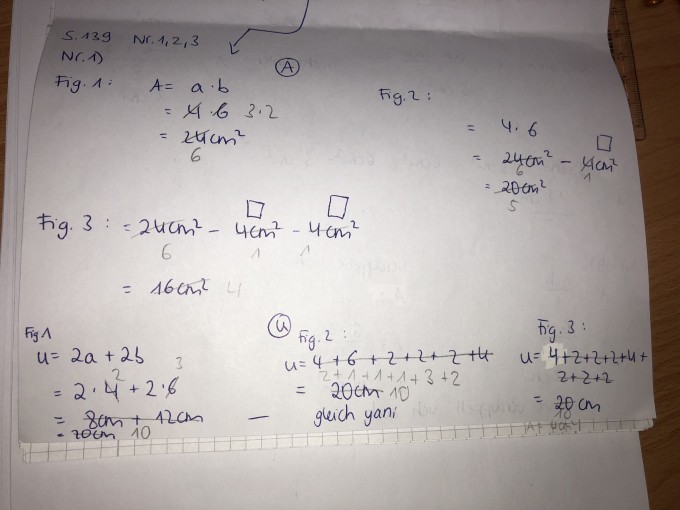 S.139 Nr.1,2,3
Nr.1)
A
Fig.1: A= a·b
= 4·6 3·2
= 24cm²
6
Fig.2:
= 4·6
= 24cm² - 4cm²
6 1
= 20cm²
5
Fig. 3: = 24cm² - 4cm² - 4cm²
6 1 1
= 16cm² 4
u
Fig 1
u= 2a + 2b
= 2·4 + 2·6
2 3
= 8cm + 12cm
= 20cm 10
Fig.2:
u= 4+6+2+2+2+4
2+1+1+1+3+2
= 20cm 10
— gleich yani
Fig. 3:
u= 4+2+2+2+4+
2+2+2
= 20cm
10